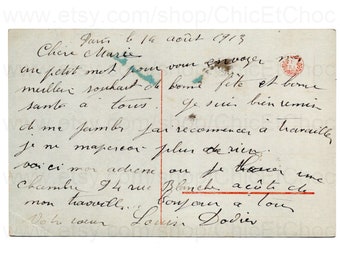 Paris le 14 août 1913
Chère Marie
un petit mot pour vous envoyer mes
meilleur souhait de bonne fête et bonne
santé a tous. Je suis bien remis
de ma jambe j'ai recommencer à travailler
je ne m'aperçoit plus de rien.
voici mon adresse ou je une
chambre 74 rue Blanche acôté de
mon travaille. bonjour a tous
Votre sœur Louise Dodier
www.etsy.com/shop/ChicEtChoc